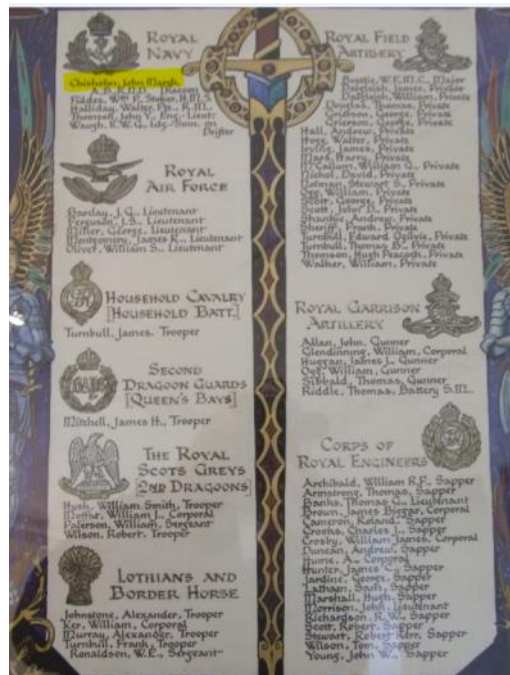 ROYAL
NAVY
Chisholm, John Marsh,
A.B. R.N.D. Racoon
Fiddes, Wm P., Stoker, H.M.S.
Halliday, Walter, Pte. R.M.
Thomson, John Y., Eng.-Lieut.
Waugh, R.W.G., Ldg.-Smn. on
Drifter
ROYAL
AIR FORCE
Barclay, J.G., Lieutenant
Ferguson, J.S., Lieutenant
Miller, George, Lieutenant
Montgomery, James R., Lieutenant
Oliver, William S., Lieutenant
HOUSEHOLD CAVALRY
[HOUSEHOLD BATT.]
Turnbull, James. Trooper
SECOND
DRAGOON GUARDS
[QUEEN'S BAYS]
Mitchell, James H., Trooper
THE ROYAL
SCOTS GREYS
[2ND DRAGOONS]
Hush, William Smith, Trooper
Moffat, William J., Corporal
Paterson, William, Sergeant
Wilson, Robert, Trooper
LOTHIANS AND
BORDER HORSE
Johnstone, Alexander, Trooper
Ker, William, Corporal
Murray, Alexander, Trooper
Turnbull, Frank, Trooper
Ronaldson, W.E., Sergeant
ROYAL FIELD
ARTILLERY
Beattie, W.E.M.C., Major
Dalgleish, James, Private
Dalgleish, William, Private
Douglas, Thomas, Private
Grierson, George, Private
Grierson, George, Private
Hall, Andrew, Private
Hogg, Walter, Private
Irving, James, Private
Mars, Harry, Private
McCallum, William G., Private
Nichol, David, Private
Notman, Stewart S., Private
Ogg, William, Private
Scott, George, Private
Scott, John D., Private
Shankie, Andrew, Private
Sheriff, Frank, Private
Turnbull, Edward Ogilvie, Private
Turnbull, Thomas B., Private
Thomson, Hugh Peacock, Private
Walker, William, Private
ROYAL GARRISON
ARTILLERY
Allan, John. Gunner
Glendinning, William, Corporal
Huggan, James J., Gunner
Ogg, William, Gunner
Sibbald, Thomas, Gunner
Riddle, Thomas, Battery S.M.
CORPS OF
ROYAL ENGINEERS
Archibald, William R.F., Sapper
Armstrong, Thomas, Sapper
Banks, Thomas G., Lieutenant
Brown, James Biggar, Corporal
Cameron, Roland, Sapper
Crooks, Charles J., Sapper
Crosby, William James, Corporal
Duncan, Andrew, Sapper
Hume, A., Corporal
Hunter, James C., Sapper
Jardine, George, Sapper
Latham, Sam, Sapper
Marshall, Hugh, Sapper
Morrison, John, Lieutenant
Richardson, R.W., Sapper
Scott, Robert, Sapper
Stewart, Robert Kerr, Sapper
Wilson, Tom, Sapper
Young, John W., Sapper